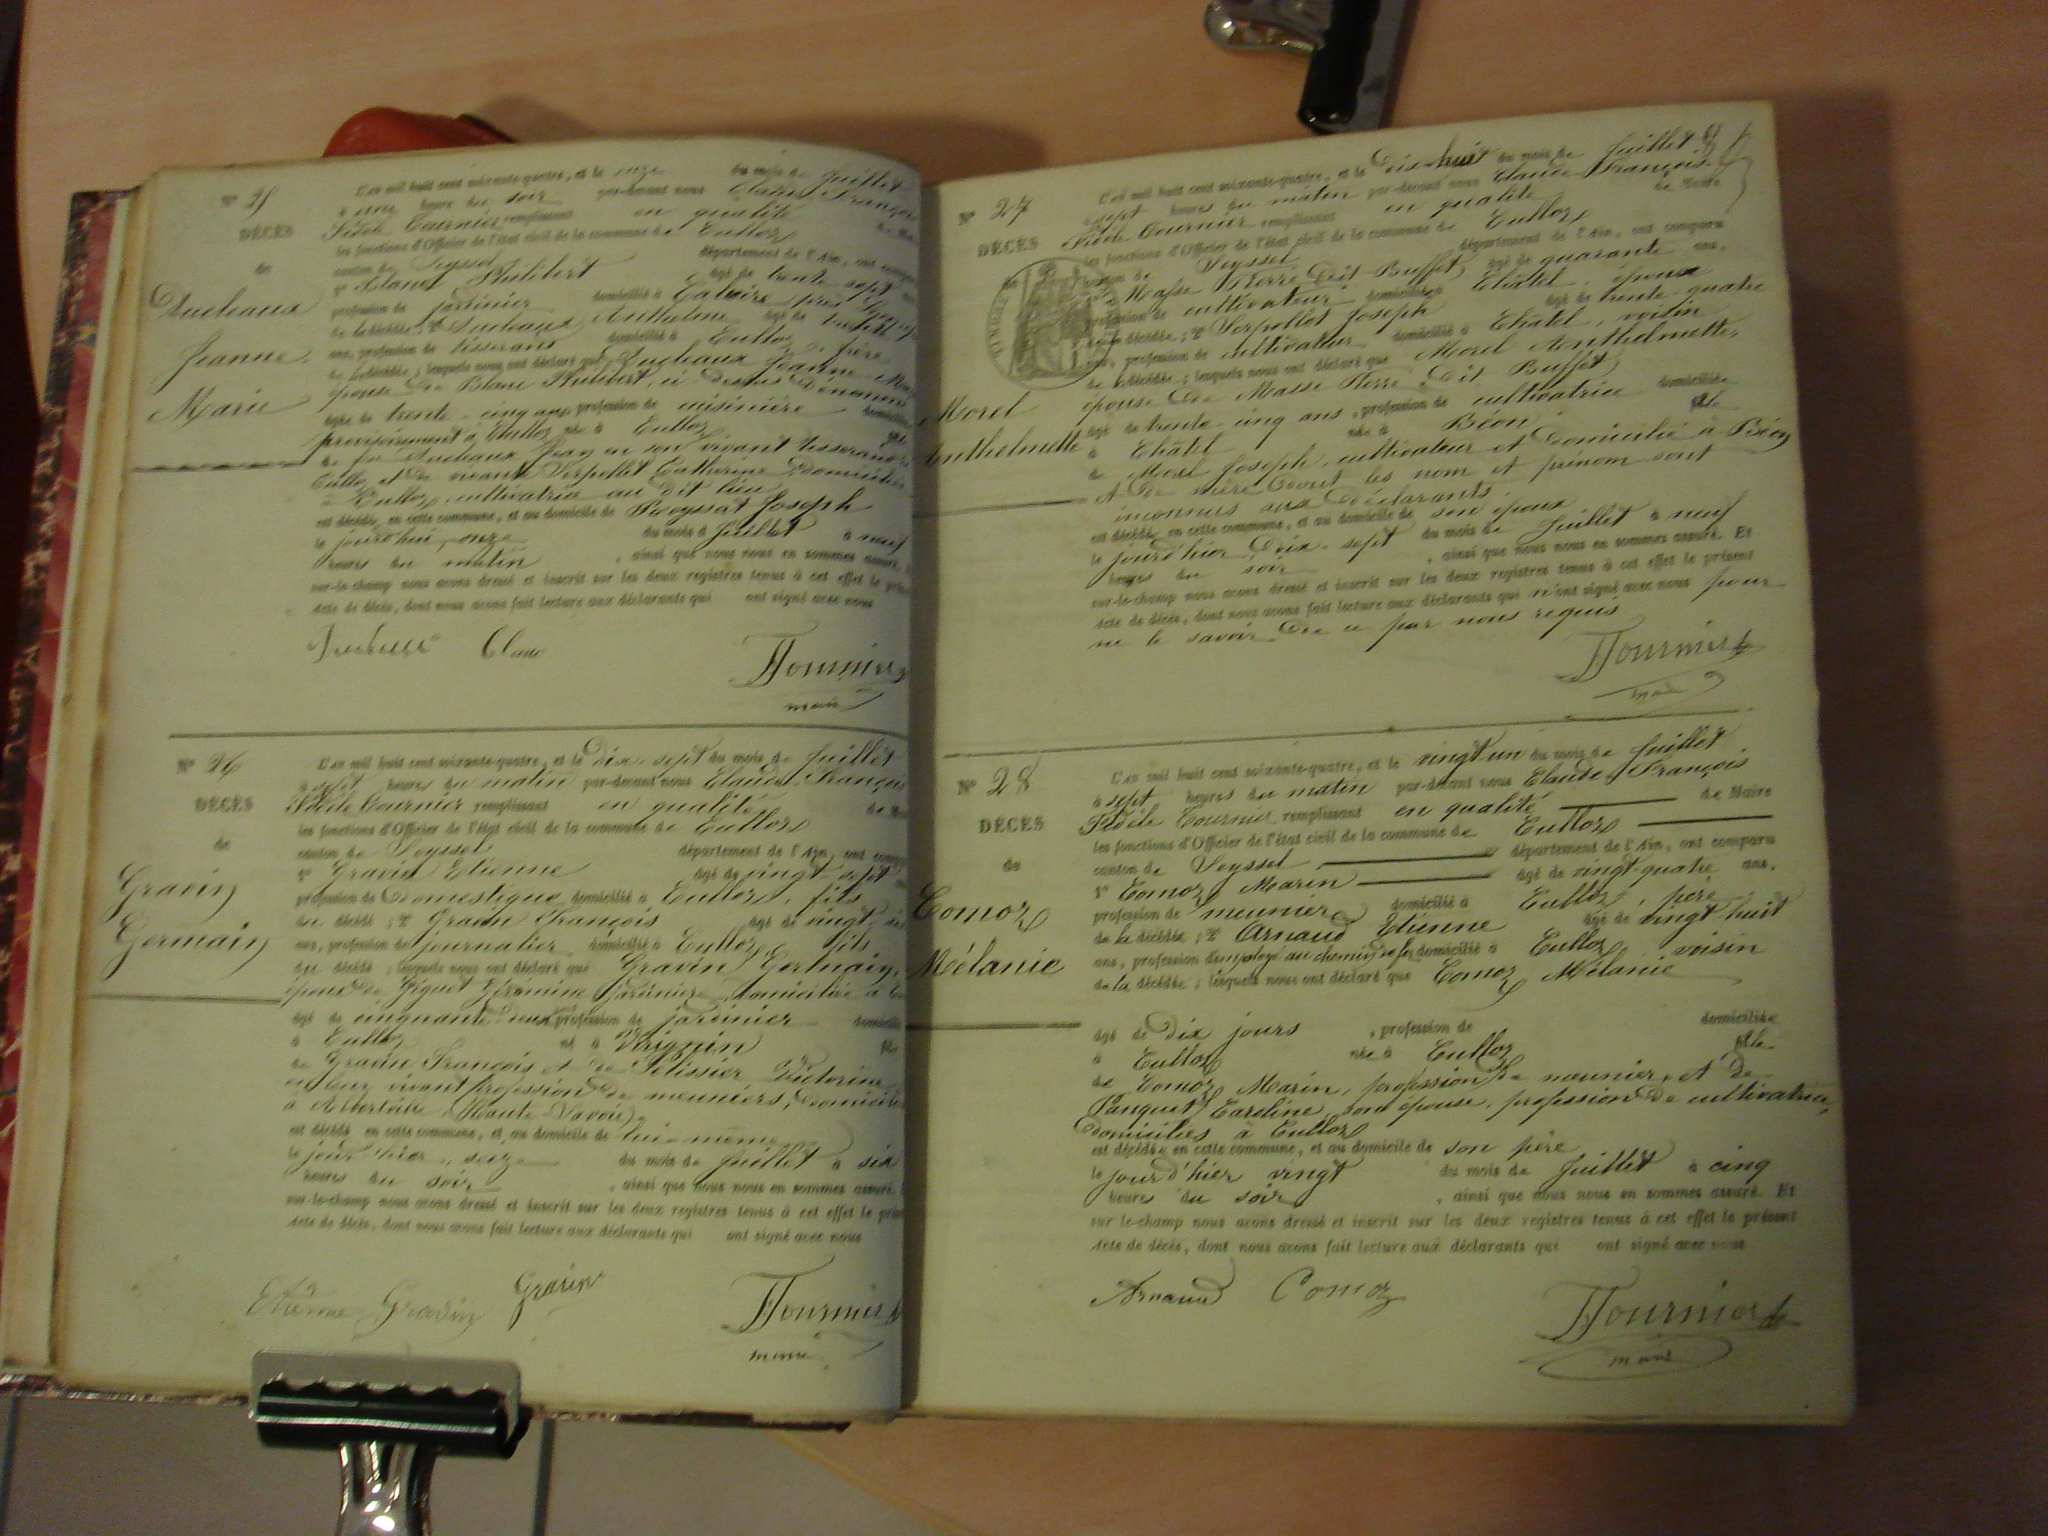 N° 25
DÉCÈS
de
Jeanne
Marie
L'an mil huit cent soixante-quatre, et le onze du mois de Juillet
à une heure du soir par-devant nous Claude François
Fidèle Tournier remplissant en qualité de Maire
les fonctions d'Officier de l'état civil de la commune de Culloz
canton de Seyssel département de l'Ain, ont comparu
1° Philibert âgé de trente sept
profession de jardinier domicilié à près
de la décédée ; 2° Anthelme âgé de
ans, profession de tisserand domicilié à Culloz, frère
de la décédée ; lesquels nous ont déclaré que Jeanne Marie
épouse de Philibert, ci-dessus dénommé
âgée de trente-cinq ans profession de cuisinière domiciliée
provisoirement à Culloz née à Culloz fille
de feu Jean en son vivant tisserand à
Culloz et de vivante Serpollet Catherine domiciliée
à Culloz, cultivatrice au dit lieu
est décédée en cette commune, et au domicile de Joseph
le jourd'hui, onze du mois de Juillet à neuf
heures du matin, ainsi que nous nous en sommes assuré.
sur-le-champ nous avons dressé et inscrit sur les deux registres tenus à cet effet le
acte de décès, dont nous avons fait lecture aux déclarants qui ont signé avec nous
Tournier
maire
N° 26
DÉCÈS
de
Gravin
Germain
L'an mil huit cent soixante-quatre, et le dix-sept du mois de Juillet
à sept heures du matin par-devant nous Claude François
Fidèle Tournier remplissant en qualité de Maire
les fonctions d'Officier de l'état civil de la commune de Culloz
canton de Seyssel département de l'Ain, ont comparu
1° Gravin Etienne âgé de vingt-sept
profession de domestique domicilié à Culloz, fils
du décédé ; 2° Gravin François âgé de vingt
ans, profession de journalier domicilié à Culloz, fils
du décédé ; lesquels nous ont déclaré que Gravin Germain,
époux de jardinière domiciliée à
âgé de cinquante profession de jardinier domicilié
à Culloz né à Virignin fils
de Gravin François et de Pélissier Victorine
en leur vivant profession de meuniers, domiciliés
à Albertville (Haute Savoie)
est décédé en cette commune, et au domicile de lui-même
le jour d'hier, seize du mois de Juillet à six
heures du soir, ainsi que nous nous en sommes assuré.
sur-le-champ nous avons dressé et inscrit sur les deux registres tenus à cet effet le
acte de décès, dont nous avons fait lecture aux déclarants qui ont signé avec nous
Etienne Gravin Gravin Tournier
maire
N° 27
DÉCÈS
de
TIMBRE
Morel
Anthelmette
L'an mil huit cent soixante-quatre, et le Dix-huit du mois de Juillet
à sept heures du matin par-devant nous Claude François
Fidèle Tournier remplissant en qualité de Maire
les fonctions d'Officier de l'état civil de la commune de Culloz
canton de Seyssel département de l'Ain, ont comparu
1° Masse Pierre Dit Buffet âgé de quarante ans,
profession de cultivateur domicilié à Châtel, époux
de la décédée ; 2° Serpollet Joseph âgé de trente-quatre
ans, profession de cultivateur domicilié à Châtel, voisin
de la décédée ; lesquels nous ont déclaré que Morel Anthelmette,
épouse de Masse Pierre Dit Buffet
âgée de trente-cinq ans, profession de cultivatrice domiciliée
à Châtel née à Béon fille
de Morel Joseph, cultivateur et domicilié à Béon
et de mère dont les nom et prénom sont
inconnus aux déclarants
est décédée en cette commune, et au domicile de son époux
le jour d'hier, Dix-sept du mois de Juillet à neuf
heures du soir, ainsi que nous nous en sommes assuré. Et
sur-le-champ nous avons dressé et inscrit sur les deux registres tenus à cet effet le présent
acte de décès, dont nous avons fait lecture aux déclarants qui n'ont signé avec nous pour
ne le savoir de ce par nous requis
Tournier
maire
N° 28
DÉCÈS
de
Comoz
Mélanie
L'an mil huit cent soixante-quatre, et le vingt un du mois de Juillet
à sept heures du matin par-devant nous Claude François
Fidèle Tournier remplissant en qualité de Maire
les fonctions d'Officier de l'état civil de la commune de Culloz
canton de Seyssel département de l'Ain, ont comparu
1° Comoz Marin âgé de vingt-quatre ans,
profession de meunier domicilié à Culloz, père
de la décédée ; 2° Arnaud Etienne âgé de vingt huit
ans, profession d'employé au chemin de fer domicilié à Culloz, voisin
de la décédée ; lesquels nous ont déclaré que Comoz Mélanie
âgée de dix jours, profession de domiciliée
à Culloz née à Culloz fille
de Comoz Marin, profession de meunier, et de
Panquet Caroline, son épouse, profession de cultivatrice,
domiciliés à Culloz
est décédée en cette commune, et au domicile de son père
le jour d'hier vingt du mois de Juillet à cinq
heures du soir, ainsi que nous nous en sommes assuré. Et
sur le-champ nous avons dressé et inscrit sur les deux registres tenus à cet effet le présent
acte de décès, dont nous avons fait lecture aux déclarants qui ont signé avec nous
Arnaud Comoz Tournier
maire